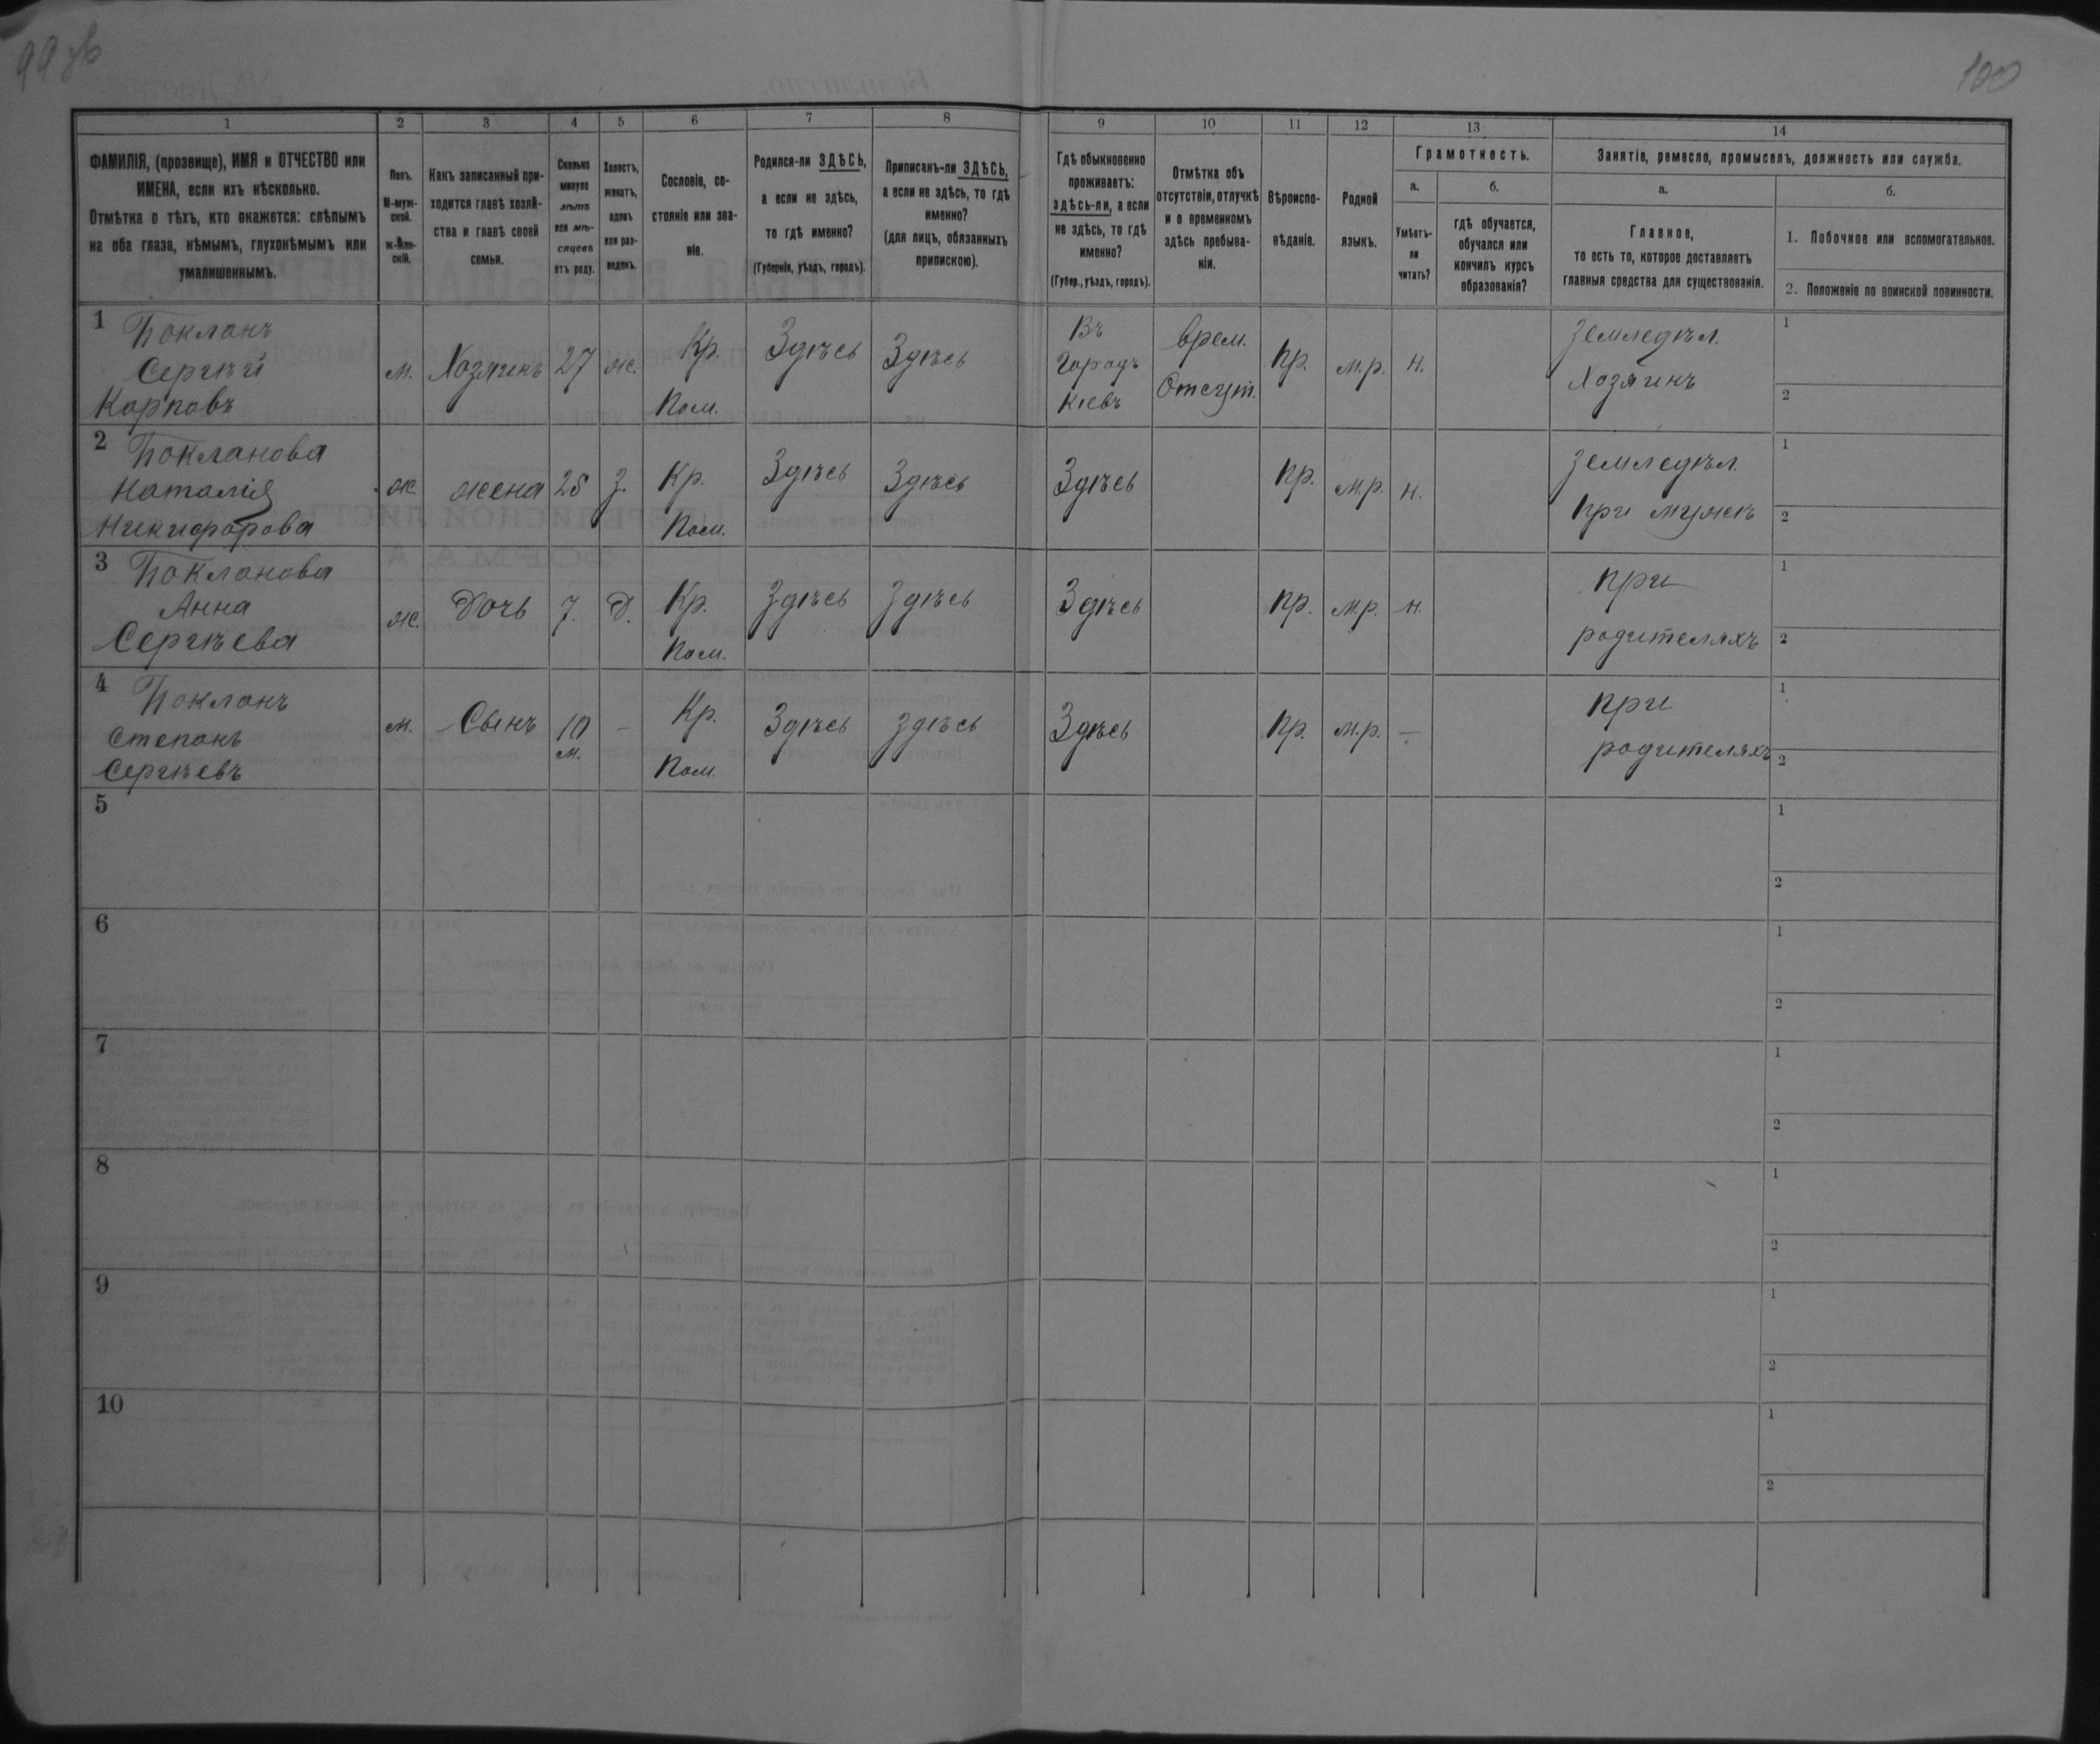 99 об
100
1
2
3
4
5
6
7
8
9
10
11
12
13
14
ФАМИЛІЯ, (прозвище), ИМЯ и ОТЧЕСТВО или
ИМЕНА, если ихъ нѣсколько.
Отмѣтка о тѣхъ, кто окажется: слѣпымъ
на оба глаза, нѣмымъ, глухонѣмымъ или
умалишеннымъ.
Полъ.
М-муж-
ской.
ж-Жен-
скій.
Какъ записанный при-
ходится главѣ хозяй-
ства и главѣ своей
семьи.
Сколько
минуло
лѣтъ
или мѣ-
сяцевъ
отъ роду.
Холостъ,
женатъ,
вдовъ
или раз-
веденъ.
Сословіе, со-
стояніе или зва-
ніе.
Родился-ли ЗДѢСЬ,
а если не здѣсь,
то гдѣ именно?
(Губернія, уѣздъ, городъ).
Приписанъ-ли ЗДѢСЬ,
а если не здѣсь, то гдѣ
именно?
(для лицъ, обязанныхъ
припискою).
Гдѣ обыкновенно
проживаетъ:
здѣсь-ли, а если
не здѣсь, то гдѣ
именно?
(Губер., уѣздъ, городъ).
Отмѣтка объ
отсутствіи, отлучкѣ
и о временномъ
здѣсь пребыва-
ніи.
Вѣроиспо-
вѣданіе.
Родной
языкъ.
Грамотность.
а.
Умѣетъ-
ли
читать?
б.
гдѣ обучается,
обучался или
кончилъ курсъ
образованія?
Занятіе, ремесло, промыселъ, должность или служба.
а.
Главное,
то есть то, которое доставляетъ
главныя средства для существованія.
б.
1. Побочное или вспомогательное.
2. Положеніе по воинской повинности.
1
Бокланъ
Сергѣй
Карповъ
м.
Хозяинъ
27
ж.
Кр.
Пом.
Здѣсь
Здѣсь
Въ
Городъ
Кіевъ
врем.
Отсут.
Пр.
м.р.
н.
Земледѣл.
Хозяинъ
1
2
2
Бокланова
Наталія
Никифорова
ж.
жена
25
З.
Кр.
Пом.
Здѣсь
Здѣсь
Здѣсь
Пр.
м.р.
н.
Земледѣл.
При мужѣ
1
2
3
Бокланова
Анна
Сергѣева
ж.
Дочь
7.
Д.
Кр.
Пом.
Здѣсь
Здѣсь
Здѣсь
Пр.
м.р.
н.
При
родителяхъ
1
2
4
Бокланъ
Степанъ
Сергѣевъ
м.
Сынъ
10
м.
-
Кр.
Пом.
Здѣсь
Здѣсь
Здѣсь
Пр.
м.р.
-
При
родителяхъ
1
2
5
1
2
6
1
2
7
1
2
8
1
2
9
1
2
10
1
2